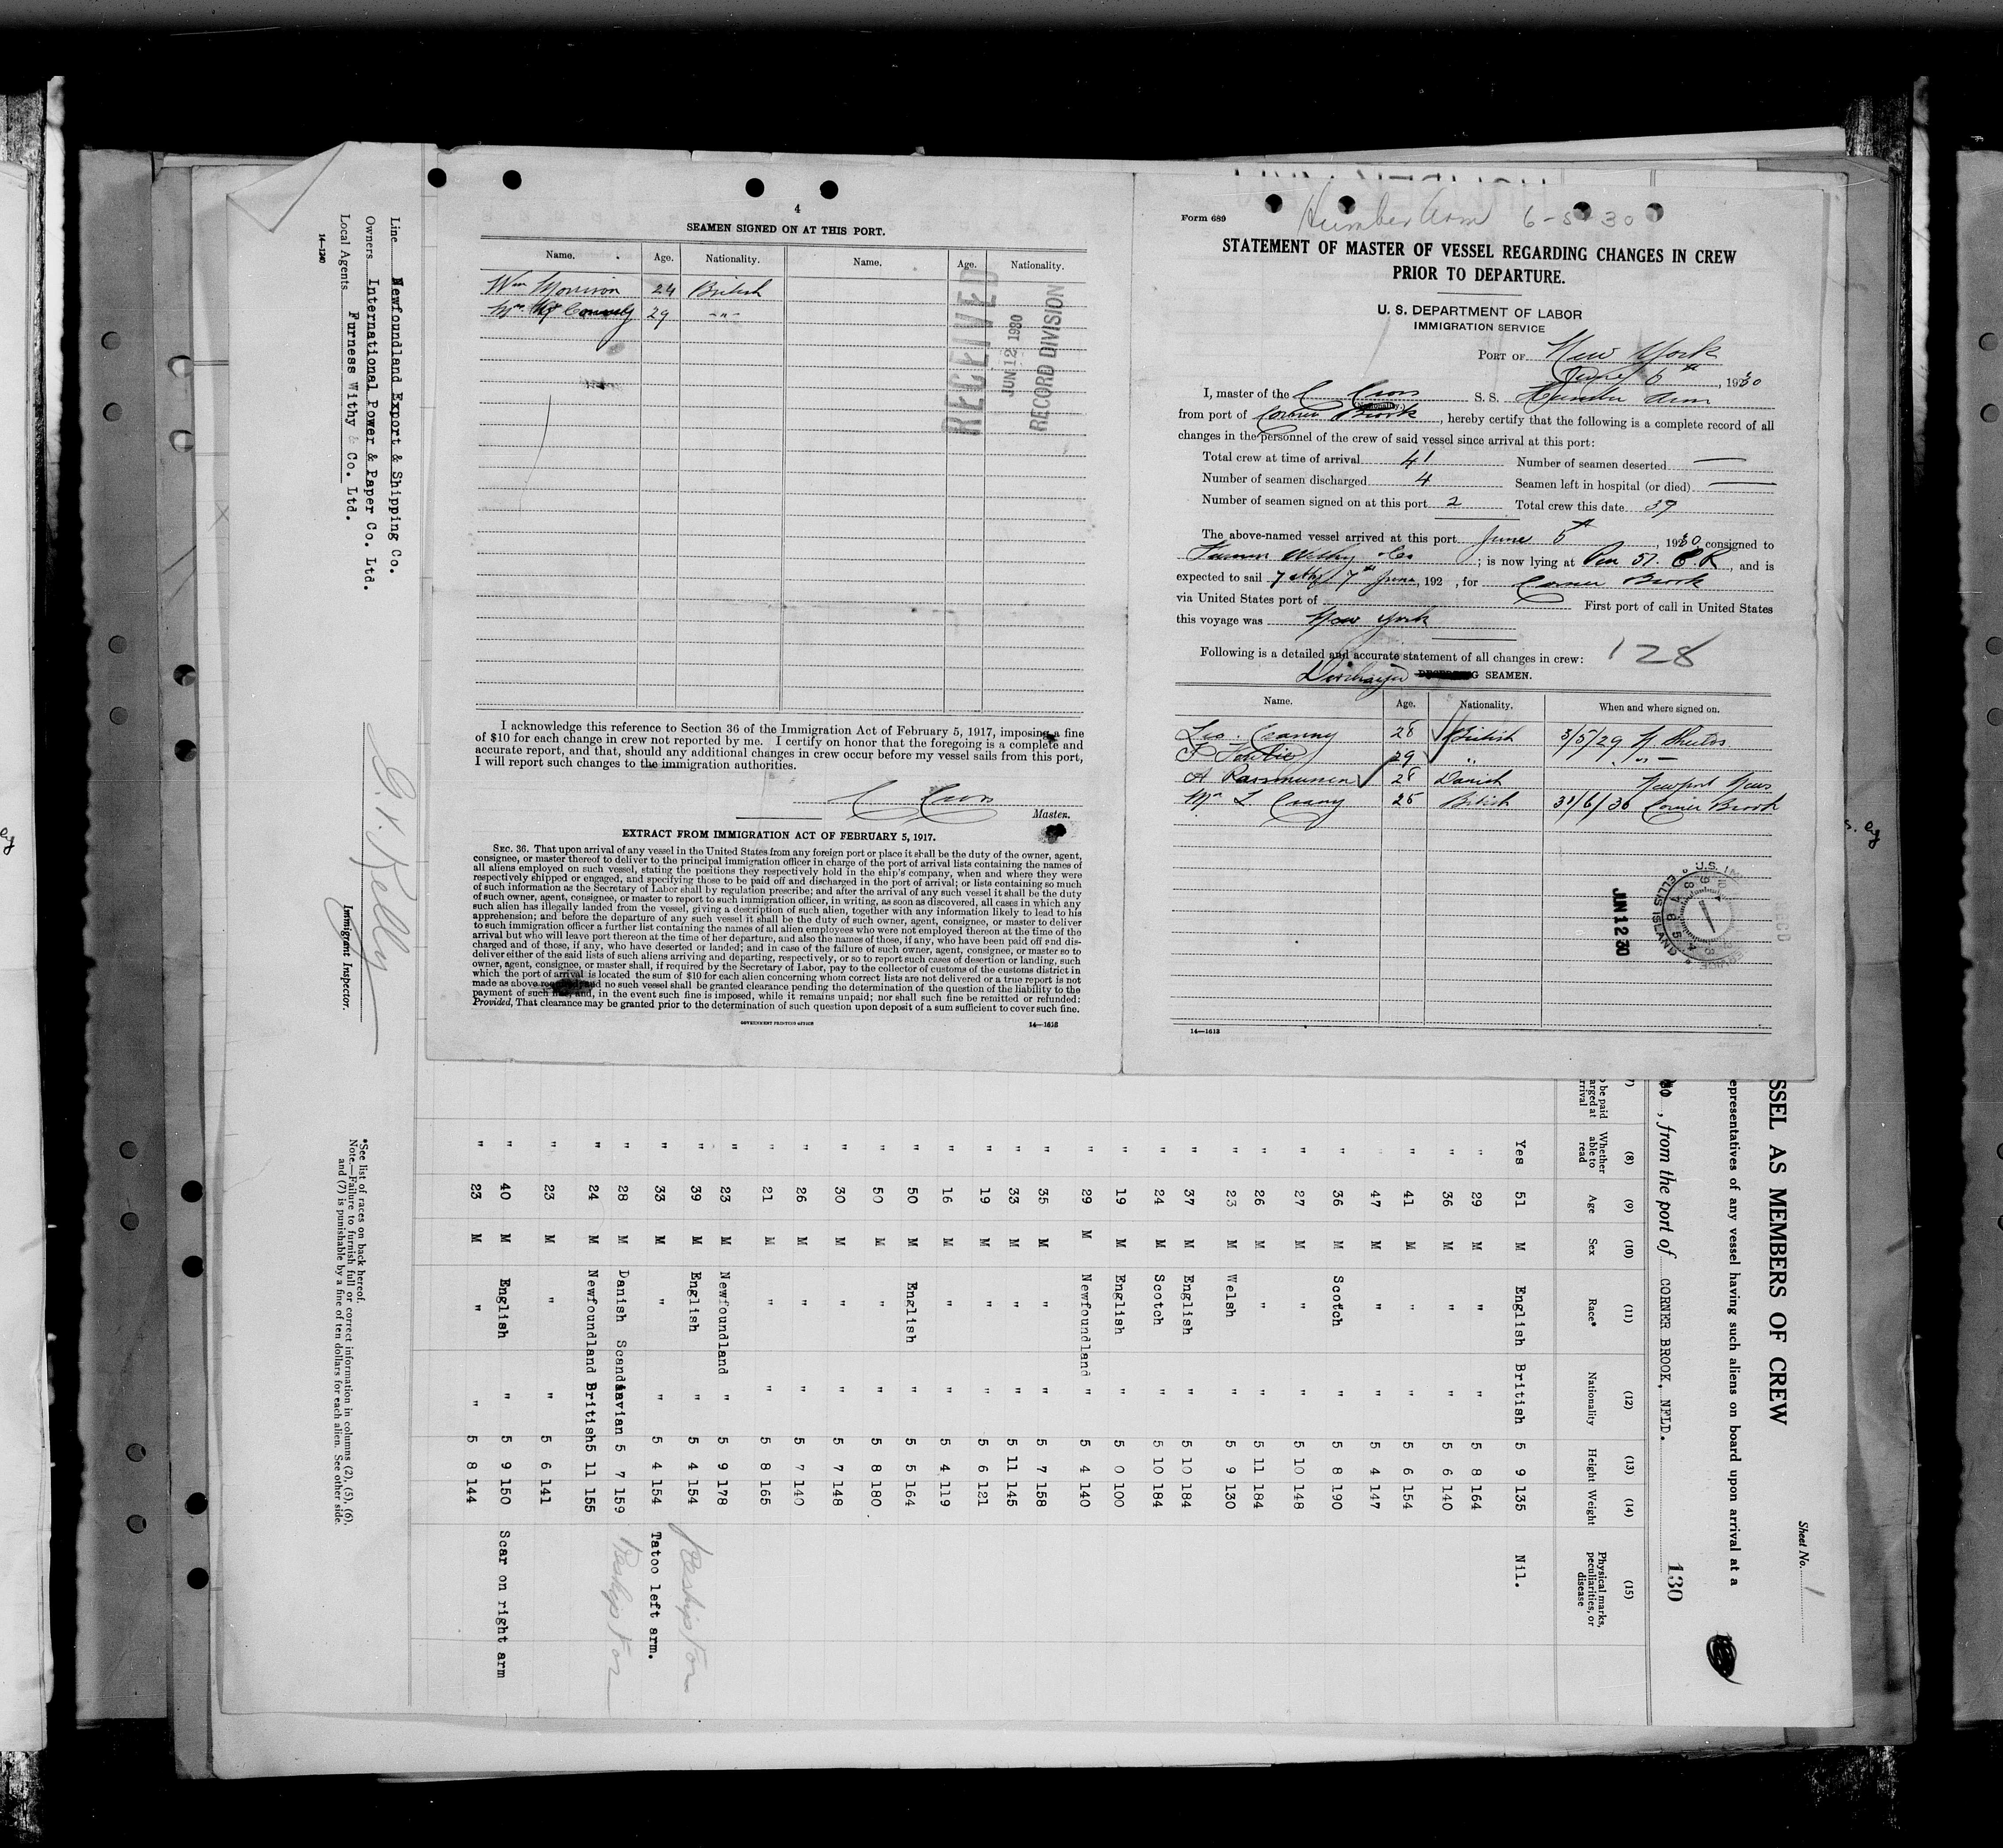 4
SEAMEN SIGNED ON AT THIS PORT.
Name. Age. Nationality. Name. Age. Nationality.
Wm Morrison 24 British
29 -"-
RECEIVED
JUN 12 1930
RECORD DIVISION
I acknowledge this reference to Section 36 of the Immigration Act of February 5, 1917, imposing a fine
of $10 for each change in crew not reported by me. I certify on honor that the foregoing is a complete and
accurate report, and that, should any additional changes in crew occur before my vessel sails from this port,
I will report such changes to the immigration authorities.
Master.
EXTRACT FROM IMMIGRATION ACT OF FEBRUARY 5, 1917.
SEC. 36. That upon arrival of any vessel in the United States from any foreign port or place it shall be the duty of the owner, agent,
consignee, or master thereof to deliver to the principal immigration officer in charge of the port of arrival lists containing the names of
all aliens employed on such vessel, stating the positions they respectively hold in the ship's company, when and where they were
respectively shipped or engaged, and specifying those to be paid off and discharged in the port of arrival; or lists containing so much
of such information as the Secretary of Labor shall by regulation prescribe; and after the arrival of any such vessel it shall be the duty
of such owner, agent, consignee, or master to report to such immigration officer, in writing, as soon as discovered, all cases in which any
such alien has illegally landed from the vessel, giving a description of such alien, together with any information likely to lead to his
apprehension; and before the departure of any such vessel it shall be the duty of such owner, agent, consignee, or master to deliver
to such immigration officer a further list containing the names of all alien employees who were not employed thereon at the time of the
arrival but who will leave port thereon at the time of her departure, and also the names of those, if any, who have been paid off and dis-
charged and of those, if any, who have deserted or landed; and in case of the failure of such owner, agent, consignee, or master so to
deliver either of the said lists of such aliens arriving and departing, respectively, or so to report such cases of desertion or landing, such
owner, agent, consignee, or master shall, if required by the Secretary of Labor, pay to the collector of customs of the customs district in
which the port of arrival is located the sum of $10 for each alien concerning whom correct lists are not delivered or a true report is not
made as above required; and no such vessel shall be granted clearance pending the determination of the question of the liability to the
payment of such fine, and, in the event such fine is imposed, while it remains unpaid; nor shall such fine be remitted or refunded:
Provided, That clearance may be granted prior to the determination of such question upon deposit of a sum sufficient to cover such fine.
GOVERNMENT PRINTING OFFICE 14—1613
Form 689
Humber Arm 6-5-30
STATEMENT OF MASTER OF VESSEL REGARDING CHANGES IN CREW
PRIOR TO DEPARTURE.
U. S. DEPARTMENT OF LABOR
IMMIGRATION SERVICE
PORT OF New York
June 6th, 1930
I, master of the C Cross S. S. Humber Arm
from port of Corner Brook, hereby certify that the following is a complete record of all
changes in the personnel of the crew of said vessel since arrival at this port:
Total crew at time of arrival 41 Number of seamen deserted —
Number of seamen discharged 4 Seamen left in hospital (or died) —
Number of seamen signed on at this port 2 Total crew this date 39
The above-named vessel arrived at this port June 5th, 1930 consigned to
Furness Withy Co; is now lying at Pier 57. E.R, and is
expected to sail 7th June, 192 , for Corner Brook
via United States port of First port of call in United States
this voyage was New York
Following is a detailed and accurate statement of all changes in crew: 128
Discharged SEAMEN.
Name. Age. Nationality. When and where signed on.
28 British 3/5/29 N. Shields
29 " -"-
A Rasmussen 28 Danish Newport News
25 British Corner Brook
U.S. IM
ELLIS ISLAND
JUN 12 30
14—1613
Line Newfoundland Export & Shipping Co.
Owners International Power & Paper Co. Ltd.
Local Agents Furness Withy & Co. Ltd.
14—1240
G. V. Kelly
Immigrant Inspector.
*See list of races on back hereof.
Note.—Failure to furnish full or correct information in columns (2), (5), (6),
and (7) is punishable by a fine of ten dollars for each alien. See other side.
Sheet No. 1
SSEL AS MEMBERS OF CREW
epresentatives of any vessel having such aliens on board upon arrival at a
, from the port of CORNER BROOK, NFLD. 130
(8) (9) (10) (11) (12) (13) (14) (15)
Whether able to read Age Sex Race* Nationality Height Weight Physical marks, peculiarities, or disease
Yes 51 M English British 5 9 135 Nil.
" 29 M " " 5 8 164
" 36 M " " 5 6 140
" 41 M " " 5 6 154
" 47 M " " 5 4 147
" 36 M Scotch " 5 8 190
" 27 M " " 5 10 148
" 26 M " " 5 11 184
" 23 M Welsh " 5 9 130
" 37 M English " 5 10 184
" 24 M Scotch " 5 10 184
" 19 M English " 5 0 100
" 29 M Newfoundland " 5 4 140
" 35 M " " 5 7 158
" 33 M " " 5 11 145
" 19 M " " 5 6 121
" 16 M " " 5 4 119
" 50 M English " 5 5 164
" 50 M " " 5 8 180
" 30 M " " 5 7 148
" 26 M " " 5 7 140
" 21 M " " 5 8 165
" 23 M Newfoundland " 5 9 178
" 39 M English " 5 4 154
" 33 M " " 5 4 154 Tatoo left arm.
" 28 M Danish Scandinavian 5 7 159
" 24 M Newfoundland British 5 11 155
" 23 M " " 5 6 141
" 40 M English " 5 9 150 Scar on right arm
" 23 M " " 5 8 144